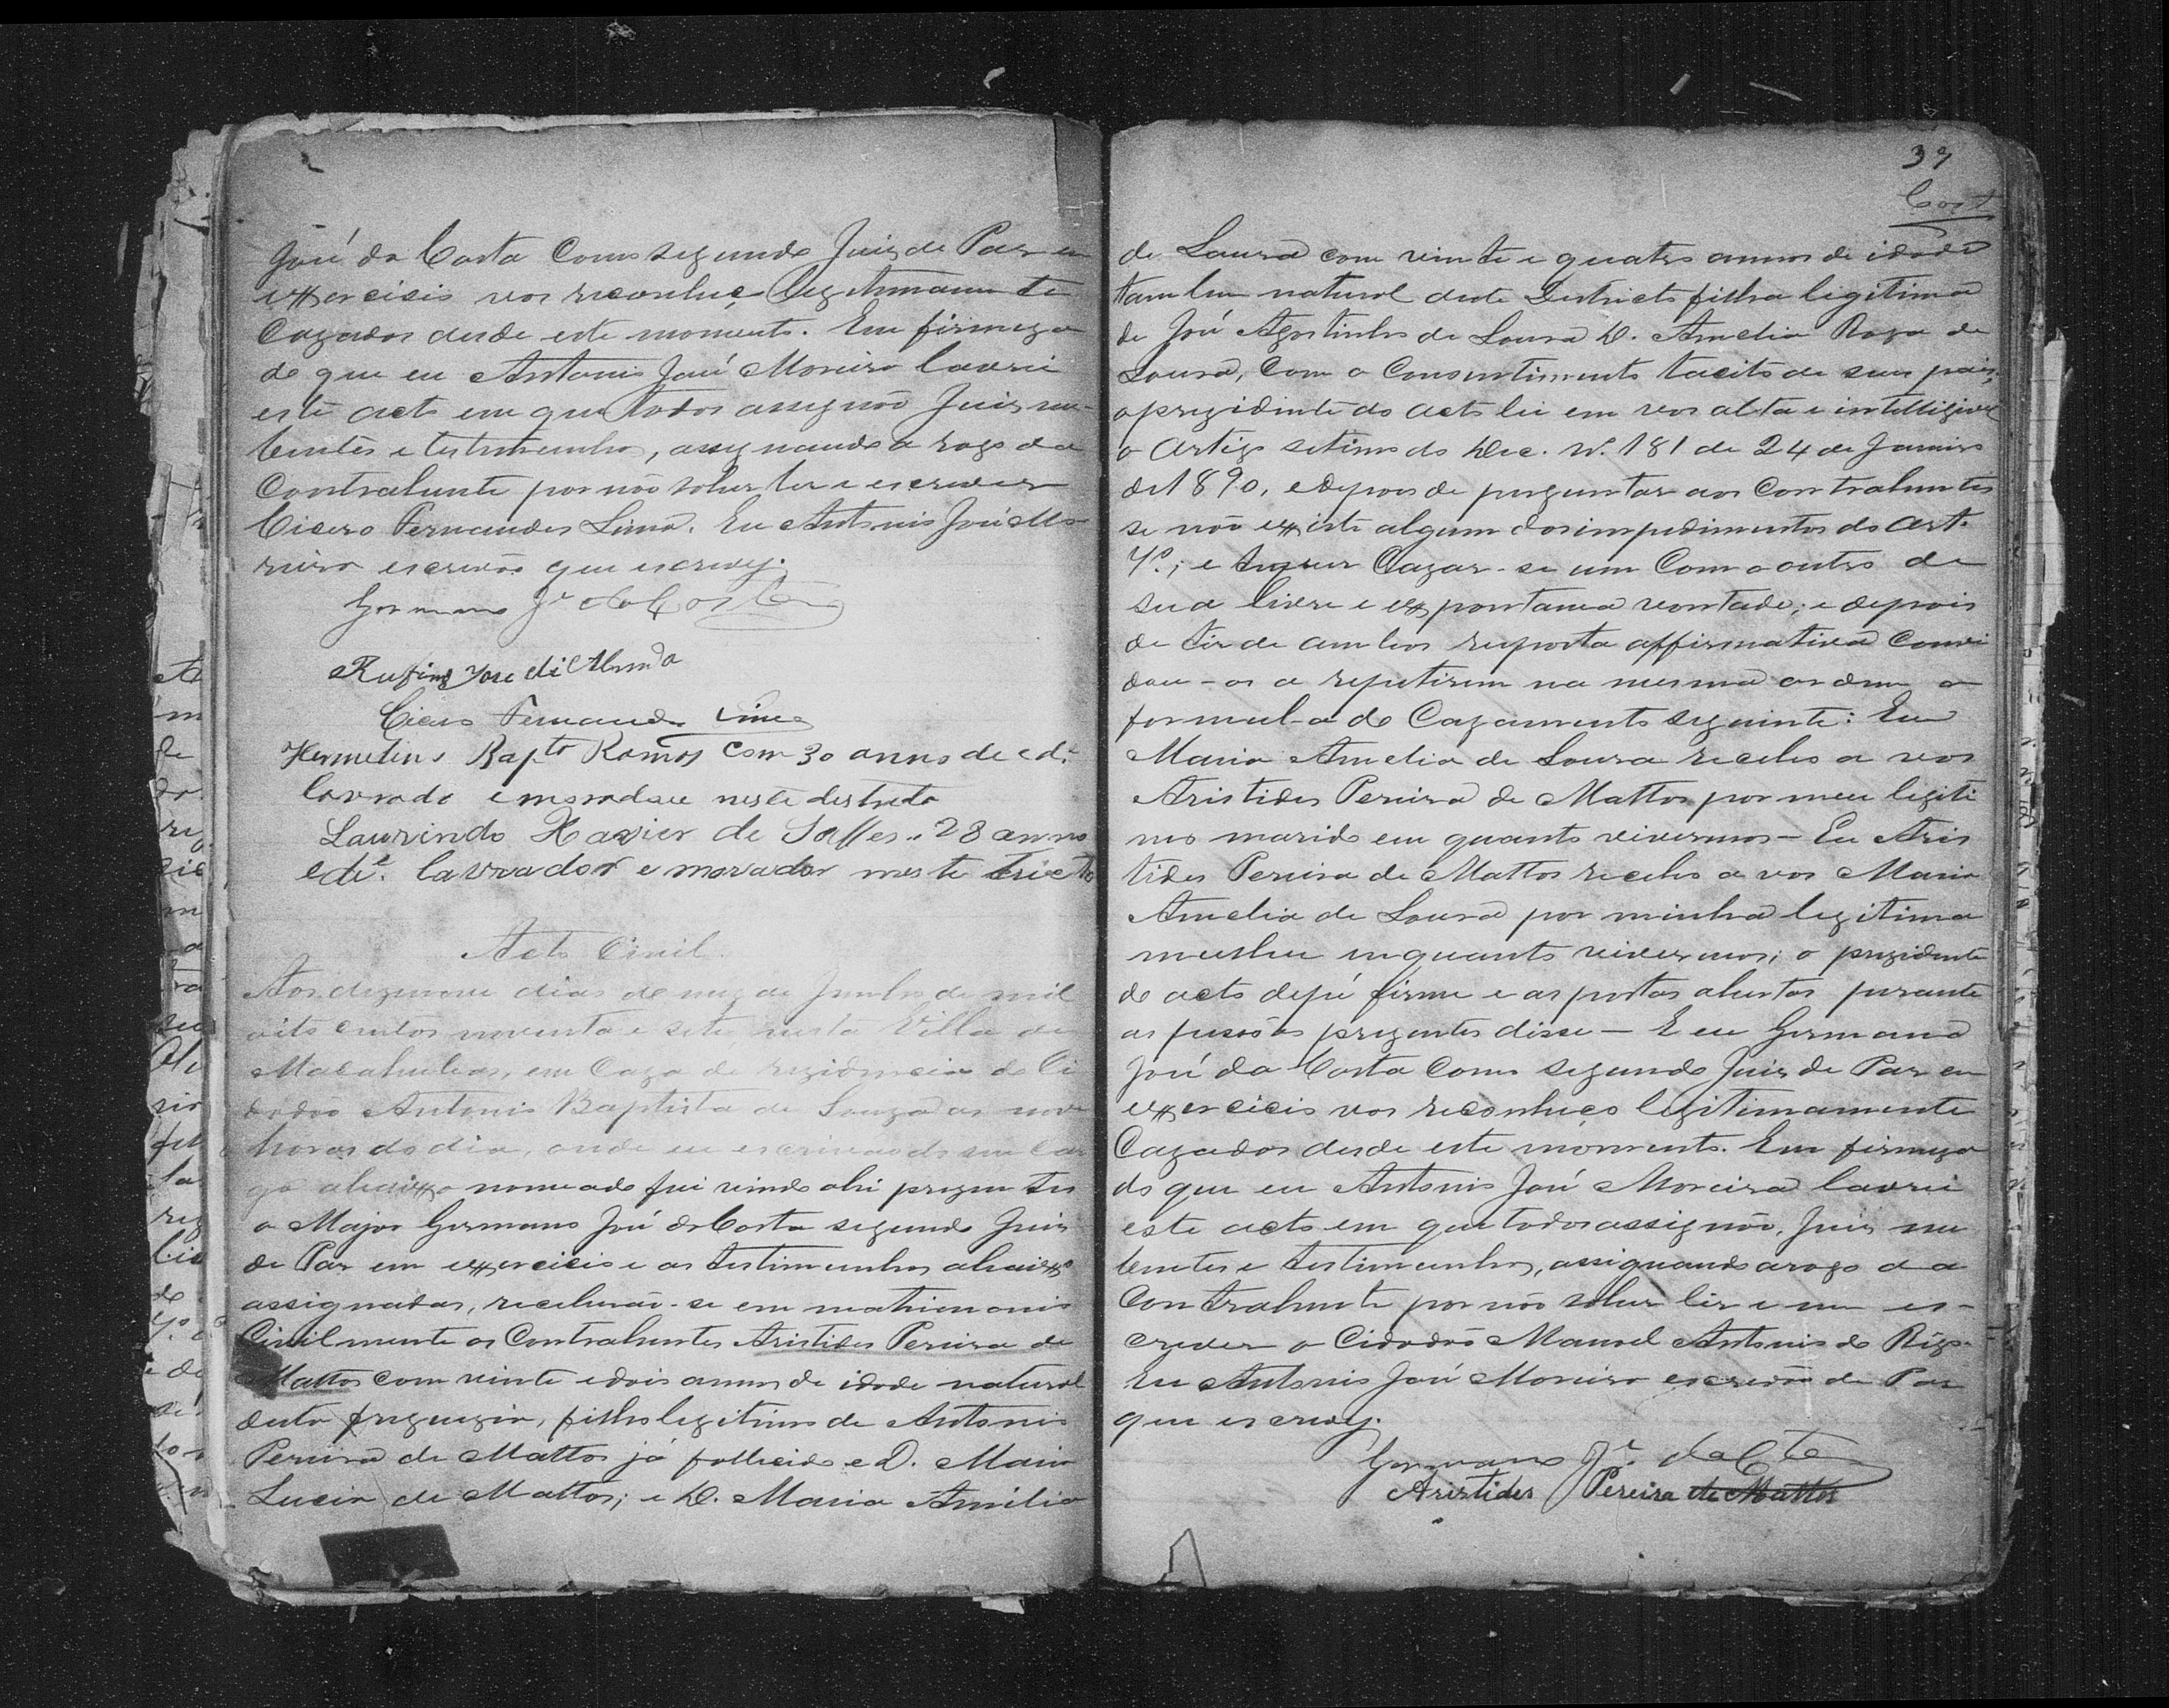 José da Costa Como segundo Juiz de Paz em
exxercicio vos reconheço legitimamente
Cazados desde este momento. Em firmeza
do que eu Antonio José Moreira lavrei
este acto em que todos assignão Juiz nu-
bentes e testimunhas, assignando a rogo da
Contrahente por não saber ler e escrever
Cicero Fernandes Lima. Eu Antonio José Mo-
reira escrivão que escrevy.
Germano Je da Costa
Rufino Jose de Almda
Cicero Fernandes Lima
Hermetino Bapto Ramos com 30 annos de ede
lavrado e morador neste destrito
Laurindo Xavier de Salles 28 annos
ede. lavrador e morador neste tricto
Acto Civil
Aos dezenove dias do mez de Junho de mil
oito centos noventa e sete nesta Villa de
Macahubas, em Caza de rezidencia do Ci
dadão Antonio Baptista de Souza as nove
horas do dia, onde eu escrivão do seu Car
go abaixxo nomeado fui vindo ahi prezentes
o Major Germano José da Costa segundo Juiz
de Paz em exxercicio e as testimunhas abaixxo
assignadas, receberão-se em matrimonio
Civilmente os Contrahentes Aristides Pereira de
Mattos com vinte e dois annos de idade natural
desta freguezia, filho legitimo de Antonio
Pereira de Mattos já fallecido e D. Maria
Lucia de Mattos; e D. Maria Amelia
37
Cost
de Soura com vinte e quatro annos de idade
tambem natural deste Districto filha legitima
de José Agostinho de Soura D. Amelia Roza de
Soura, Com o Consentimento tacito de seus pais,
o prezidente do acto leu em vos alta e intelligivel
o Artigo setimo do Dec. N. 181 de 24 de Janeiro
de 1890, e depois de perguntar aos Contrahentes
se não exxiste algum dos impedimentos do Art.
7º; e se querem Cazar-se um Com o outro de
sua livre e exxpontanea vontade; e depois
de ter de ambos resposta affirmativa Convi
dou-os a repetirem na mesma ordem a
formula do Cazamento seguinte: Eu
Maria Amelia de Soura recebo a vos
Aristides Pereira de Mattos por meu legiti
mo marido em quanto vivermos — Eu Aris
tides Pereira de Mattos recebo a vos Maria
Amelia de Soura por minha legitima
mulher enquanto vivermos; o prezidente
do acto de pé firme e as portas abertas perante
as pessôas prezentes disse — E eu Germano
José da Costa Como segundo Juiz de Paz em
exxercicio vos reconheço legitimamente
Cazados desde este momento. Em firmeza
do que eu Antonio José Moreira lavrei
este acto em que todos assignão, Juiz nu
bentes e testimunhas, assignando a rogo da
Contrahente por não saber ler e nem es-
crever o Cidadão Manoel Antonio do Rêgo.
Eu Antonio José Moreira escrivão de Paz
que escrevy.
Germano Je. da Cta
Aristides Pereira de Mattos